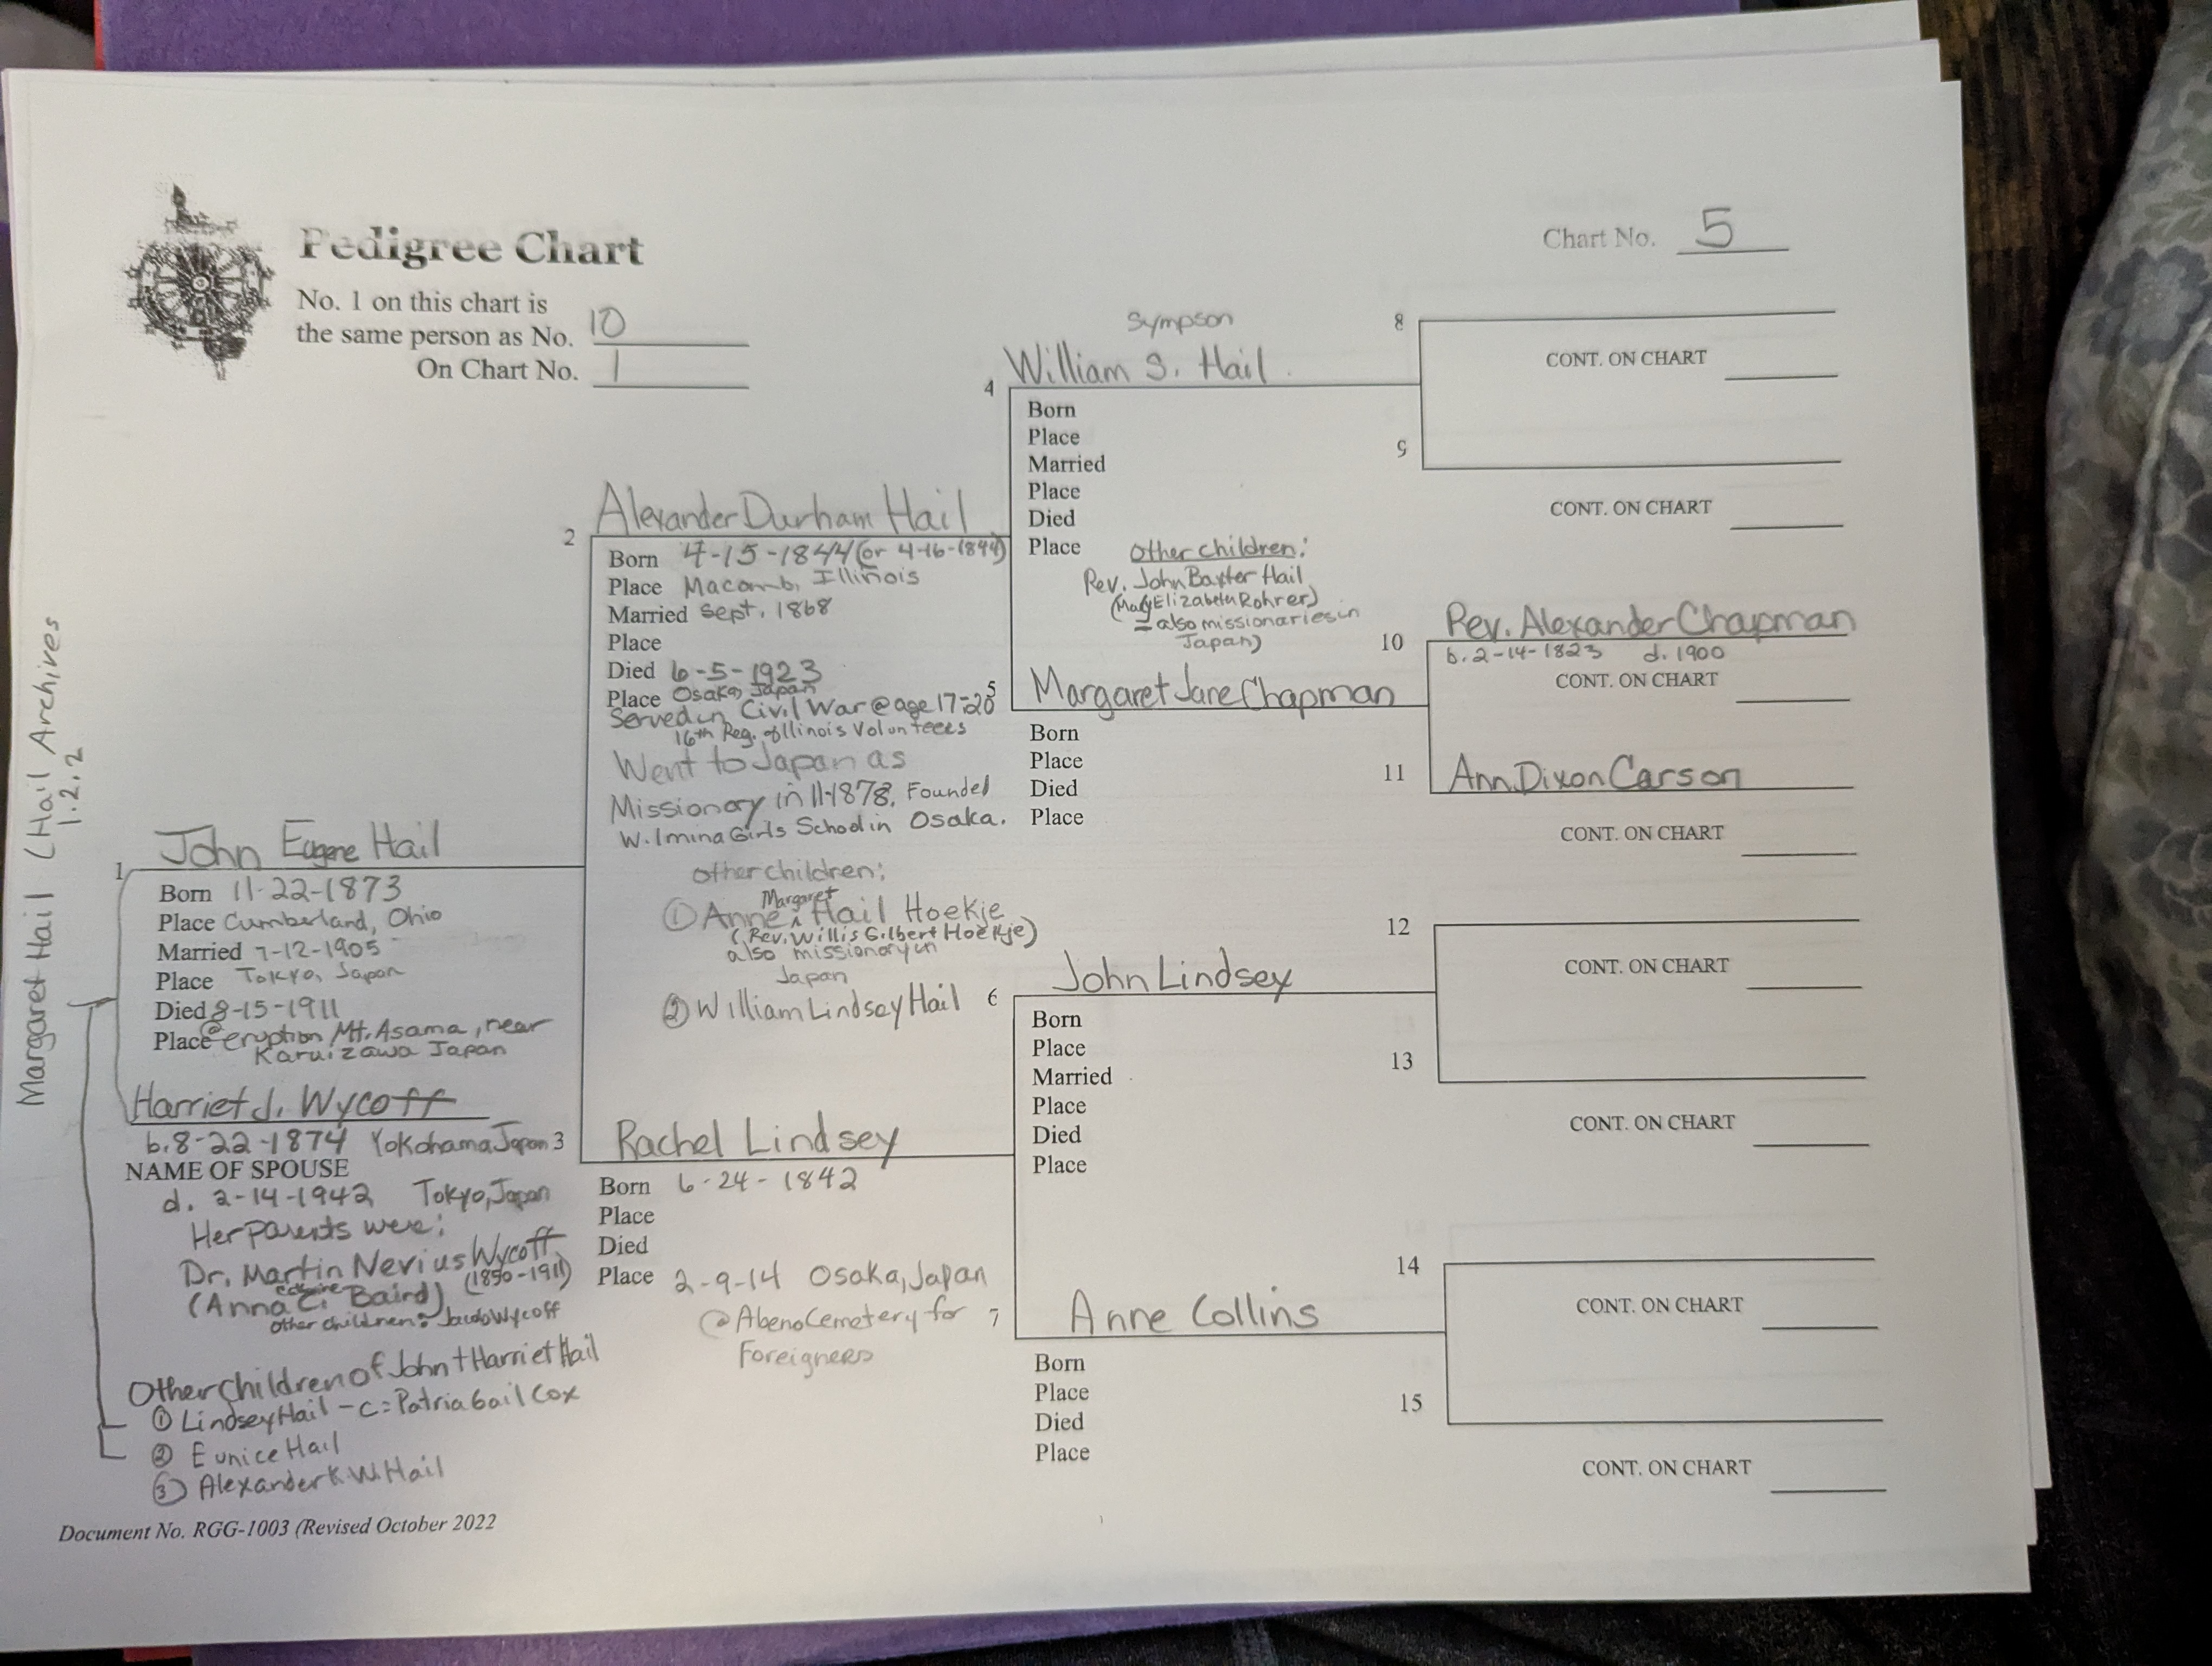 Pedigree Chart
No. 1 on this chart is
the same person as No. 10
On Chart No. 1
Chart No. 5
Margaret Hail (Hail Archives
1.2.2
1 John Eugene Hail
Born 11-22-1873
Place Cumberland, Ohio
Married 7-12-1905
Place Tokyo, Japan
Died 8-15-1911
Place @ eruption Mt. Asama, near
Karuizawa Japan
Harriet J. Wycoff
b. 8-22-1874 Yokohama Japan
NAME OF SPOUSE
d. 2-14-1942 Tokyo, Japan
Her parents were:
Dr. Martin Nevius Wycoff
(1850-1911)
(Anna C. Baird)
other children: Jacob Wycoff
Other Children of John + Harriet Hail
① Lindsey Hail - c = Patria Gail Cox
② Eunice Hail
③ Alexander K. W. Hail
Document No. RGG-1003 (Revised October 2022
2 Alexander Durham Hail
Born 4-15-1844 (or 4-16-1844)
Place Macomb, Illinois
Married Sept. 1868
Place
Died 6-5-1923
Place Osaka, Japan
Served in Civil War @ age 17-20
16th Reg. of Illinois Volunteers
Went to Japan as
Missionary in 11-1878. Founded
Wilmina Girls School in Osaka.
other children:
Margaret
① Anne ^ Hail Hoekje
(Rev. Willis Gilbert Hoekje)
also missionary in
Japan
② William Lindsey Hail
3 Rachel Lindsey
Born 6-24-1842
Place
Died
Place 2-9-14 Osaka, Japan
@ Abeno Cemetery for
Foreigners
Sympson
4 William S. Hail
Born
Place
Married
Place
Died
Place
other children:
Rev. John Baxter Hail
(Mary Elizabeth Rohrer)
= also missionaries in
Japan)
5 Margaret Jane Chapman
Born
Place
Died
Place
6 John Lindsey
Born
Place
Married
Place
Died
Place
7 Anne Collins
Born
Place
Died
Place
8
CONT. ON CHART
9
CONT. ON CHART
10 Rev. Alexander Chapman
b. 2-14-1823 d. 1900
CONT. ON CHART
11 Ann Dixon Carson
CONT. ON CHART
12
CONT. ON CHART
13
CONT. ON CHART
14
CONT. ON CHART
15
CONT. ON CHART